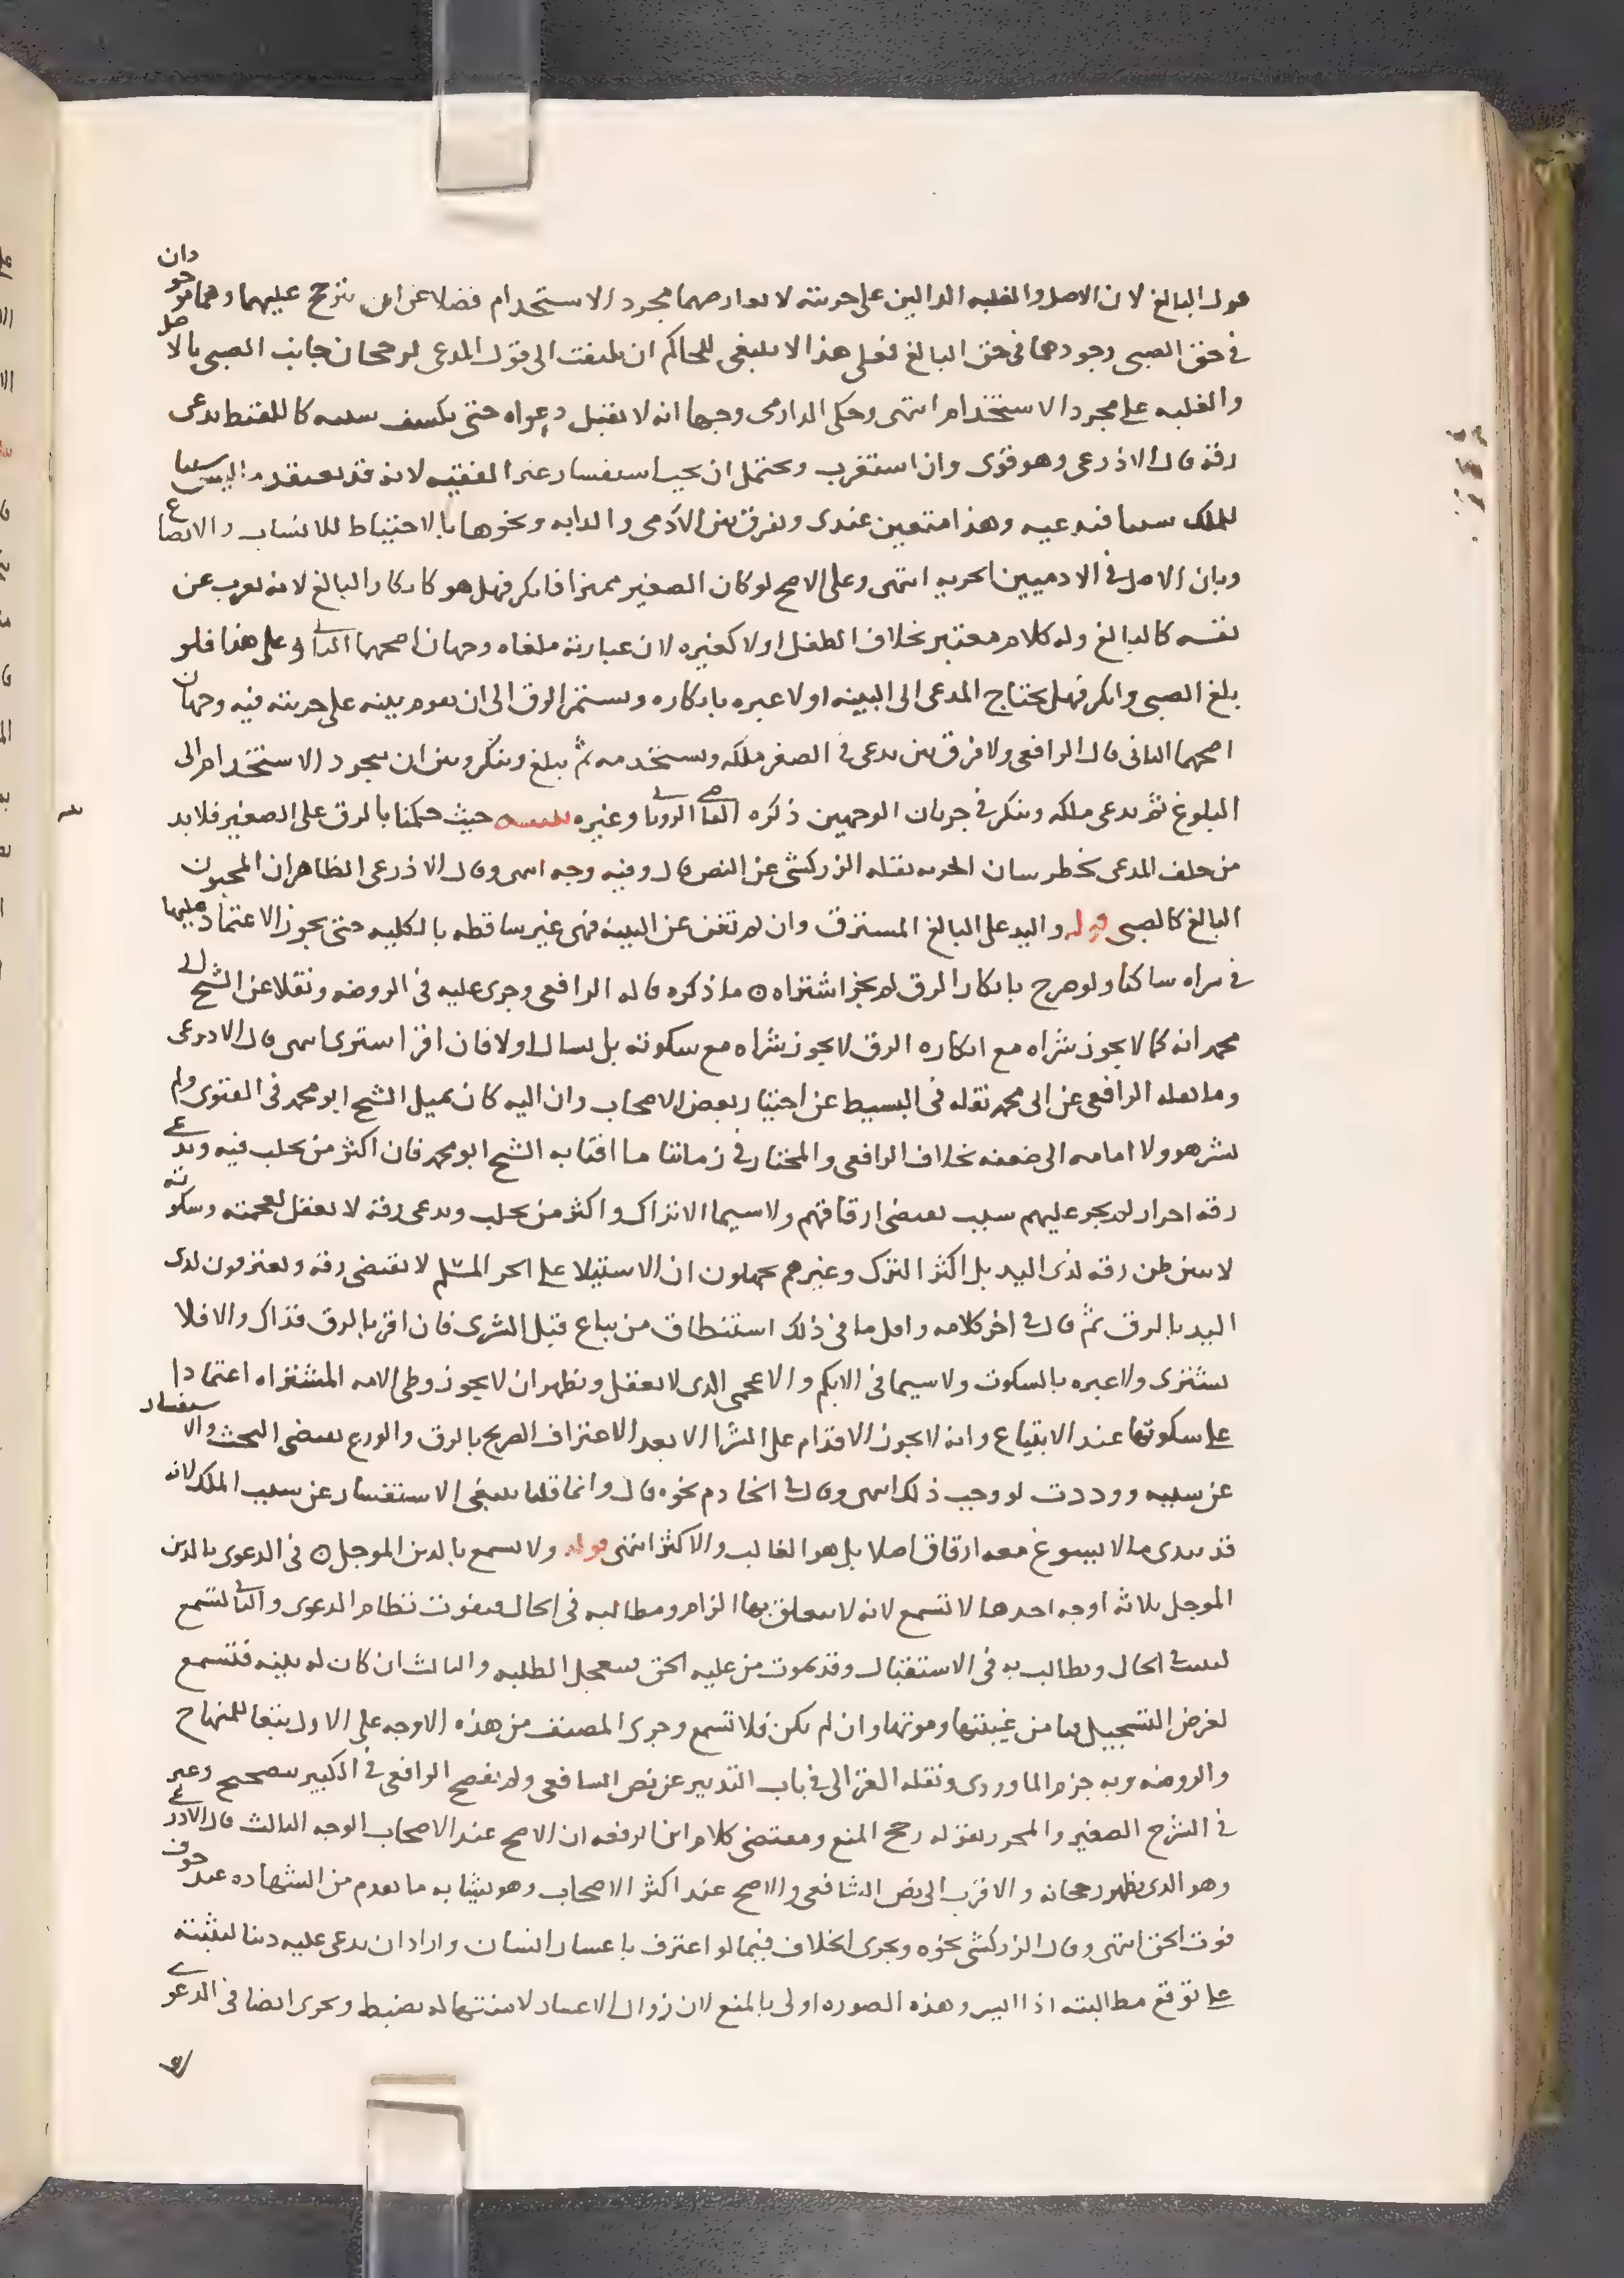 قول البالغ لان الاصل والغلبه الدالين على حريته لا يعارضهما مجرد الاستخدام فضلا عن ان يترجح عليهما وهما موجودان
في حق الصبي وجودهما في حق البالغ فعلى هذا لا ينبغي للحاكم ان يلتفت الى قول المدعي لرجحان جانب الصبي بالاصل
والغلبه على مجرد الاستخدام انتهى وحكى الدارمي وجها انه لا يقبل دعواه حتى يكشف سببه كالملتقط يدعي
رقه قال الاذرعي وهو قوي وان استغرب ويحتمل ان يجب استفسار غير الفقيه لانه قد يعتقد ما ليس سببا
للملك سببا فيدعيه وهذا متعين عندي ويفرق بين الآدمي والدابه ونحوها بالاحتياط للانساب والابضاع
وبان الاصل في الادميين الحريه انتهى وعلى الاصح لو كان الصغير مميزا فانكر فهل هو كانكار البالغ لانه يعرب عن
نفسه كالبالغ وله كلام معتبر بخلاف الطفل او لا كغيره لان عبارته ملغاه وجهان اصحهما الثاني وعلى هذا فلو
بلغ الصبي وانكر فهل يحتاج المدعي الى البينه او لا عبره بانكاره ويستمر الرق الى ان يقوم بينه على حريته فيه وجهان
اصحهما الثاني قال الرافعي ولا فرق بين ان يدعي في الصغر ملكه ويستخدمه ثم يبلغ وينكر وبين ان يتجرد الاستخدام الى
البلوغ ثم يدعي ملكه وينكر في جريان الوجهين ذكره القاضي الروياني وغيره تنبيه حيث حكمنا بالرق على الصغير فلابد
من حلف المدعي لخطر شان الحريه نقله الزركشي عن النص قال وفيه وجه انتهى وقال الاذرعي الظاهر ان المجنون
البالغ كالصبي قوله واليد على البالغ المسترق وان لم تغن عن البينه فهي غير ساقطه بالكليه حتى يجوز الاعتماد عليها
في شراه ساكتا ولو صرح بانكار الرق لم يجز اشتراه ما ذكره قاله الرافعي وجرى عليه في الروضه ونقلا عن الشيخ ابي
محمد انه كما لا يجوز شراه مع انكاره الرق لا يجوز شراه مع سكوته بل يسال اولا فان اقر اشترى انتهى قال الاذرعي
وما نقله الرافعي عن ابي محمد نقله في البسيط عن اختيار بعض الاصحاب وان اليه كان يميل الشيخ ابو محمد في الفتوى ولم
يشر هو ولا امامه الى ضعفه بخلاف الرافعي والمختار في زماننا ما افتا به الشيخ ابو محمد فان اكثر من يجلب فيه ويدعى
رقه احرار لم يجر عليهم سبب يقتضي ارقاقهم ولا سيما الاتراك واكثر من يجلب ويدعى رقه لا يعقل لعجمته وسكوته
لا يبين ظن رقه لذي اليد بل اكثر الترك وغيرهم يجهلون ان الاستيلا على الحر المسلم لا يقتضي رقه ويعترفون لذي
اليد بالرق ثم قال في اخر كلامه واقل ما في ذلك استنطاق من يباع قبل الشرى فان اقر بالرق فذاك والا فلا
يشترى ولا عبره بالسكوت ولا سيما في الابكم والاعجمي الذي لا يعقل ويظهر ان لا يجوز وطي الامه المشتراه اعتمادا
على سكوتها عند الابتياع وانه لا يجوز الاقدام على الشرا الا بعد الاعتراف الصريح بالرق والورع يقتضي البحث والاستفسار
عن سببه ووددت لو وجب ذلك انتهى وقال في الخادم نحوه قال وانما قلنا ينبغي الاستفسار عن سبب الملك لانه
قد يبدي ما لا يسوغ معه ارقاق اصلا بل هو الغالب والاكثر انتهى قوله ولا تسمع بالدين الموجل في الدعوى بالدين
الموجل ثلاثه اوجه احدها لا تسمع لانه لا يتعلق بها الزام ومطالبه في الحال فيفوت نظام الدعوى والثاني تسمع
ليثبت في الحال ويطالب به في الاستقبال وقد يموت من عليه الحق فيتعجل الطلبه والثالث ان كان له بينه فتسمع
لغرض التسجيل بها من غيبتها وموتها وان لم يكن فلا تسمع وجرى المصنف من هذه الاوجه على الاول تبعا للمنهاج
والروضه وبه جزم الماوردي ونقله الغزالي في باب التدبير عن نص الشافعي ولم يفصح الرافعي في الكبير بتصحيح وعبر
في الشرح الصغير والمحرر بقوله رجح المنع ومقتضى كلام ابن الرفعه ان الاصح عند الاصحاب الوجه الثالث قال الاذرعي
وهو الذي يظهر رجحانه والاقرب الى نص الشافعي والاصح عند اكثر الاصحاب وهو يشابه ما تقدم من الشهاده عند خوف
فوت الحق انتهى وقال الزركشي نحوه ويجري الخلاف فيما لو اعترف باعسار انسان واراد ان يدعي عليه دينا ليثبته
على توقع مطالبته اذا ايسر وهذه الصوره اولى بالمنع لان زوال الاعسار لا منتهى له يضبط ويجري ايضا في الدعوى